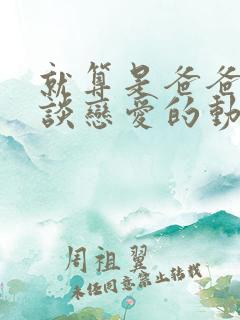 就算是爸爸
談戀愛的動
周祖翼
未经同意禁止转载